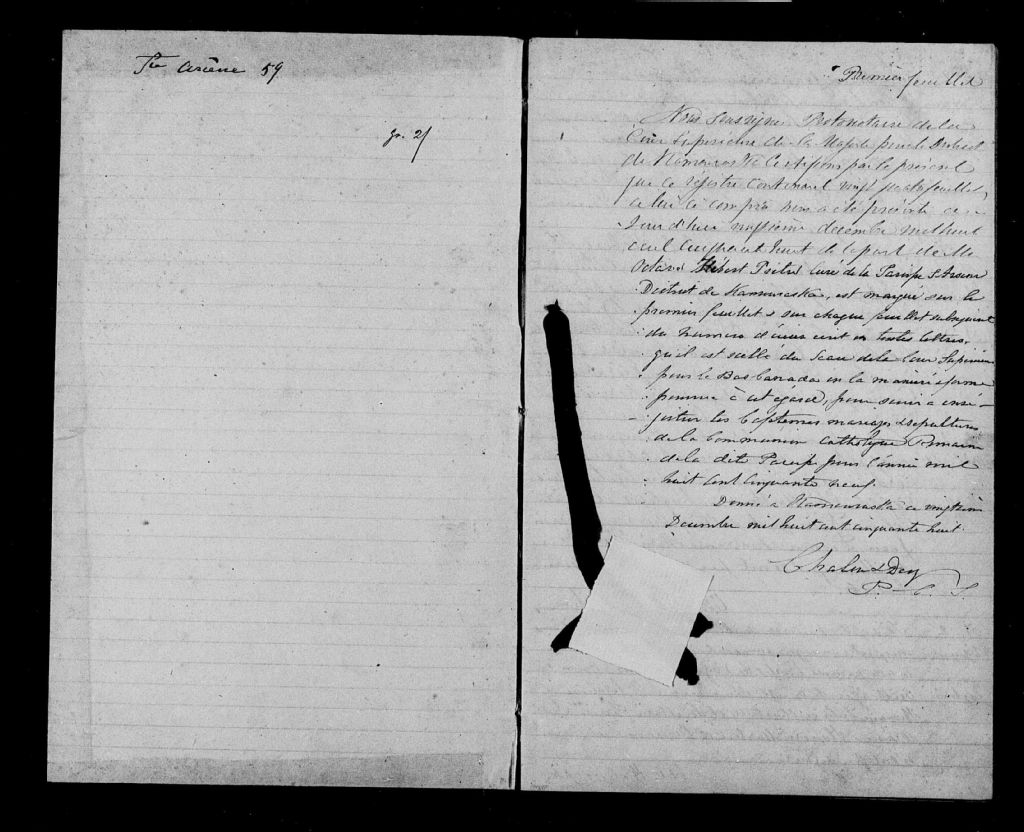 Ste Arsène 59
gr. 2/
Premier feuillet
Nous Soussigné Protonotaire de la
Cour Supérieure de Sa Majesté pour le District
de Kamouraska Certifions par le présent
que ce régistre contenant vingt quatre feuillets,
celui ci compris nous a été présenté ce
Jour d'hui vingtième décembre mil huit
cent cinquante huit de la part de Mr
Octave Hébert Prêtre Curé de la Paroisse St Arsene
District de Kamouraska, est marqué sur le
premier feuillet & sur chaque feuillet subséquent
du numero d'iceux écrit en toutes lettres,
qu'il est scellé du Sceau de la Cour Supérieure
pour le Bas Canada en la manière & forme
pourvue à cet égard, pour servir à enré-
gistrer les Baptemes mariages & sépultures
de la Communion Catholique Romaine
de la dite Paroisse pour l'année mil
huit cent cinquante neuf.
Donné à Kamouraska ce vingtième
Decembre mil huit cent cinquante huit.
P. C. S.